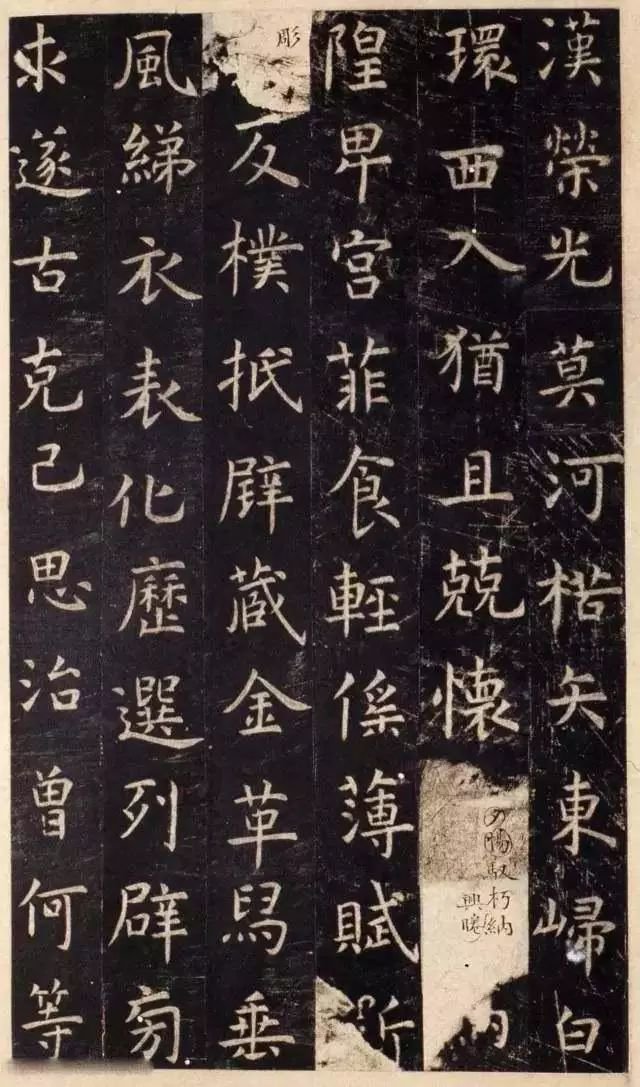 漢榮光莫河楛矢東歸白
環西入猶且兢懷馭朽納
隍卑宮菲食輕徭薄賦斲
彫反樸抵璧藏金革舄垂
風綈衣表化歷選列辟旁
求遂古克己思治曾何等